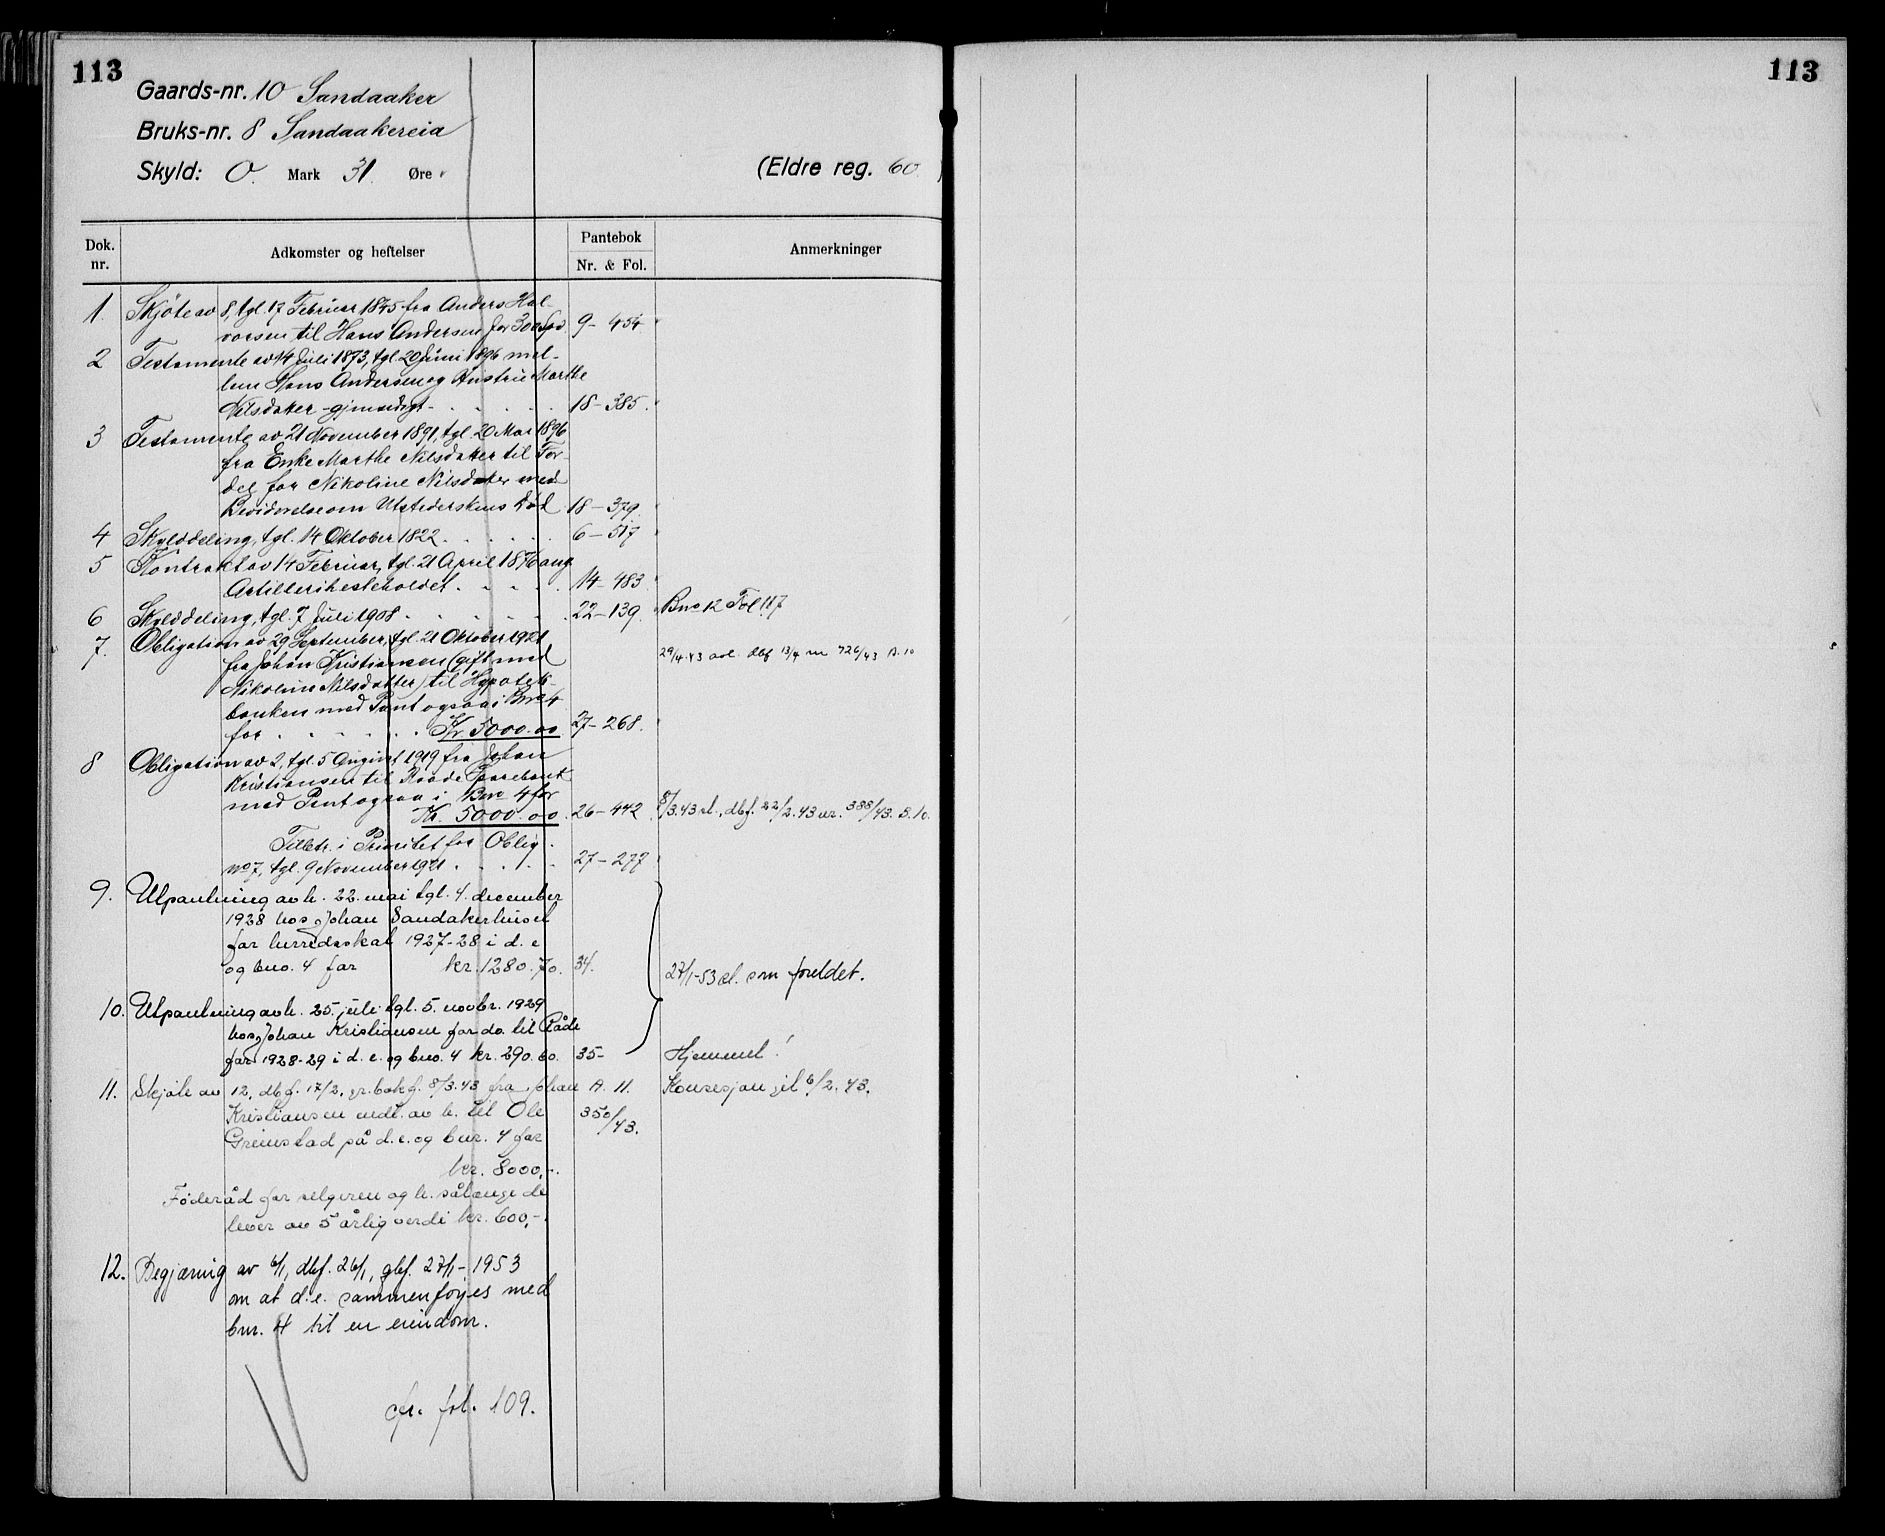 113
113
Gaards-nr. 10 Sandaaker
Bruks-nr. 8 Sandaakereia
Skyld: 0. Mark 31. Øre
(Eldre reg. 60.)
Dok. nr.
Adkomster og heftelser
Pantebok
Nr. & Fol.
Anmerkninger
1. Skjøte av 8, tgl. 17 Februar 1845 fra Anders Hal-
vorsen til Hans Andersen for 300 Spd. 9 - 454
2 Testamente av 14 Juli 1873, tgl. 20 Juni 1896 mel-
lem Hans Andersen og Hustru Marthe
Nilsdatter - gjensidigt - . . . . 18 - 385.
3 Testamente av 21 November 1891, tgl. 20 Mai 1896
fra Enke Marthe Nilsdatter til For-
del for Nikoline Nilsdatter med
Bevidnelse om Utstederskens Død 18 - 379.
4 Skylddeling, tgl. 14 Oktober 1822 . . . . . 6 - 517
5 Kontrakt av 14 Februar, tgl. 21 April 1876 ang.
Artillerihesteholdet . . . . 14 - 483
6 Skylddeling, tgl. 7 Juli 1908 . . . . . 22 - 139. Bno 12 Fol 117
7. Obligation av 29 September, tgl. 21 Oktober 1921
fra Johan Kristiansen (gift med 29/4.43 avl. dbf 13/4 nr 726/43 B. 10
Nikoline Nilsdatter) til Hypotek-
banken med Pant ogsaa i Bno 4
for . . . . . Kr. 5000.00 27 - 268.
8 Obligation av 2, tgl. 5 August 1919 fra Johan
Kristiansen til Raade Sparebank
med Pant ogsaa i Bno 4 for
Kr. 5000.00. 26 - 442 8/3.43 sl., dbf. 22/2.43 nr. 388/43. B. 10.
Tilbtr. i Prioritet for Oblig.
No 7, tgl. 9 November 1921 . . . . 27 - 277
9. Utpantning avh. 22. mai tgl. 4. december
1928 hos Johan Sandakerhuset
for herredsskat 1927-28 i d. e
og bno. 4 for kr. 1280.70. 34.
27/1-53 sl. som foreldet.
10. Utpantning avh. 25. juli tgl. 5. novbr. 1929
hos Johan Kristiansen for do. til Råde
for 1928-29 i d. e. og bno. 4 kr. 290.60. 35 -
Hjemmel!
11. Skjøte av 12, dbf. 17/2, gr.bokf. 8/3.43 fra Johan A. 11. Konsesjon git 6/2.43.
Kristiansen medt. av h. til Ole 350/43.
Grimstad på d. e. og bnr. 4 for
kr. 8000,-.
Føderåd for selgeren og h. sålænge de
lever av 5 årlig verdi kr. 600,-.
12. Begjæring av 6/1, dbf. 26/1, gbf. 27/1-1953
om at d. e. sammenføyes med
bnr. 4 til en eiendom.
cfr. fol. 109.